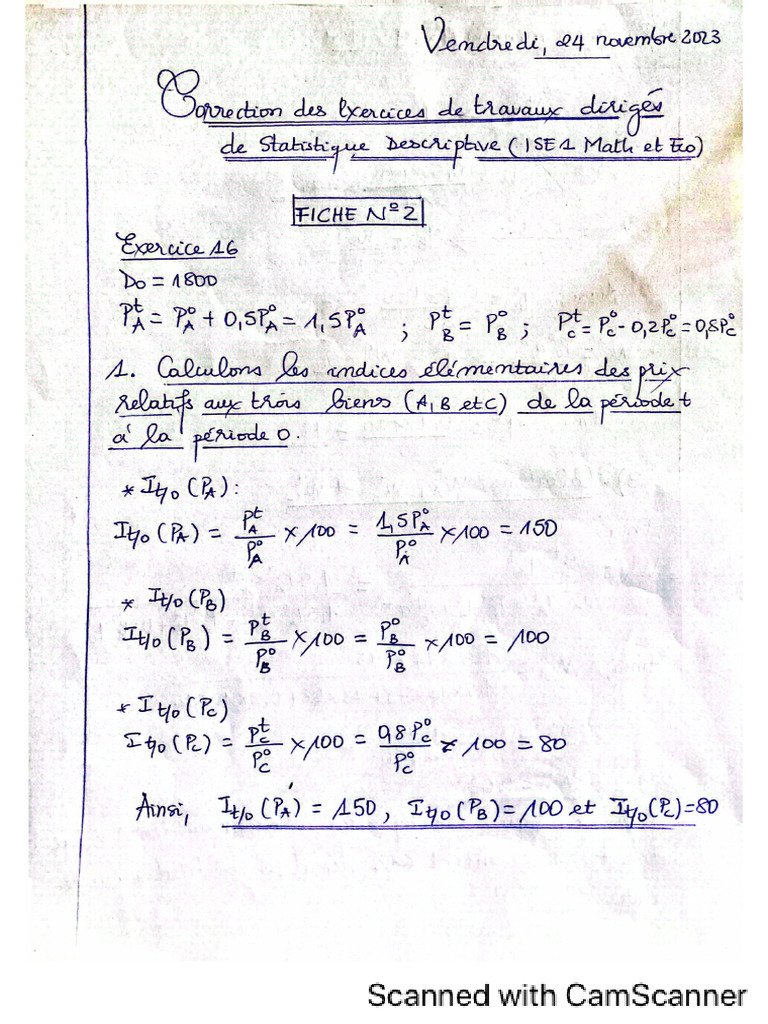 Vendredi, 24 novembre 2023
Correction des Exercices de travaux dirigés
de Statistique Descriptive (ISE1 Math et Eco)
FICHE N°2
Exercice 16
D₀ = 1800
P_A^t = P_A^0 + 0,5P_A^0 = 1,5P_A^0 ; P_B^t = P_B^0 ; P_C^t = P_C^0 - 0,2P_C^0 = 0,8P_C^0
1. Calculons les indices élémentaires des prix
relatifs aux trois biens (A, B et C) de la période t
à la période 0.
* I_t/0 (P_A) :
I_t/0 (P_A) = P_A^t / P_A^0 × 100 = 1,5P_A^0 / P_A^0 × 100 = 150
* I_t/0 (P_B)
I_t/0 (P_B) = P_B^t / P_B^0 × 100 = P_B^0 / P_B^0 × 100 = 100
* I_t/0 (P_C)
I_t/0 (P_C) = P_C^t / P_C^0 × 100 = 0,8P_C^0 / P_C^0 × 100 = 80
Ainsi, I_t/0 (P_A) = 150, I_t/0 (P_B) = 100 et I_t/0 (P_C) = 80
Scanned with CamScanner